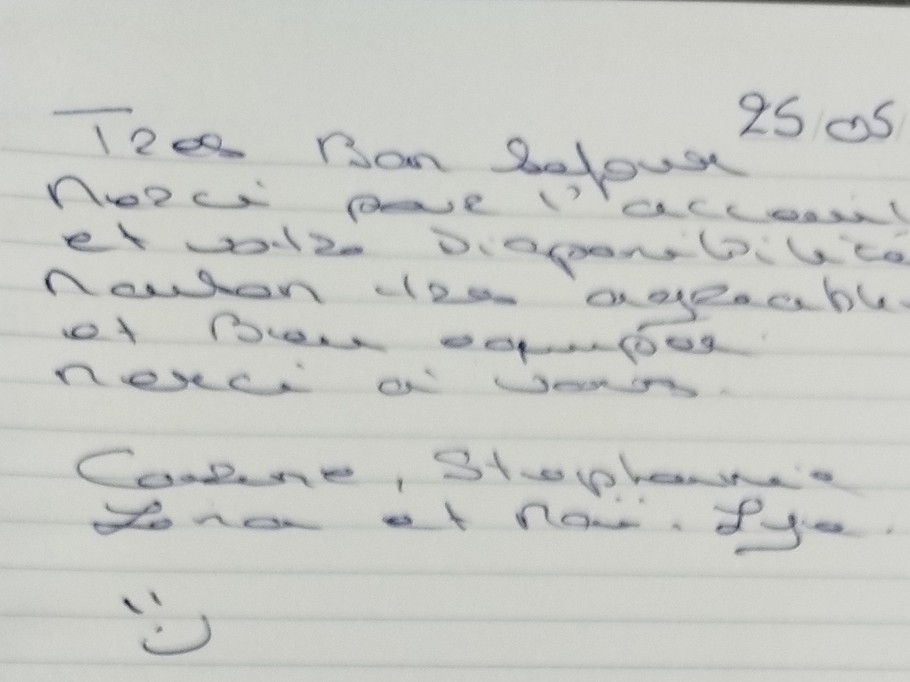 25/05
Tres Bon Sejour
Merci pour l'accueil
et votre Disponibilité
Maison tres agreable
et Bien equipée
Merci a vous.
Carine, Stephanie
Lena et Maï. Lye.